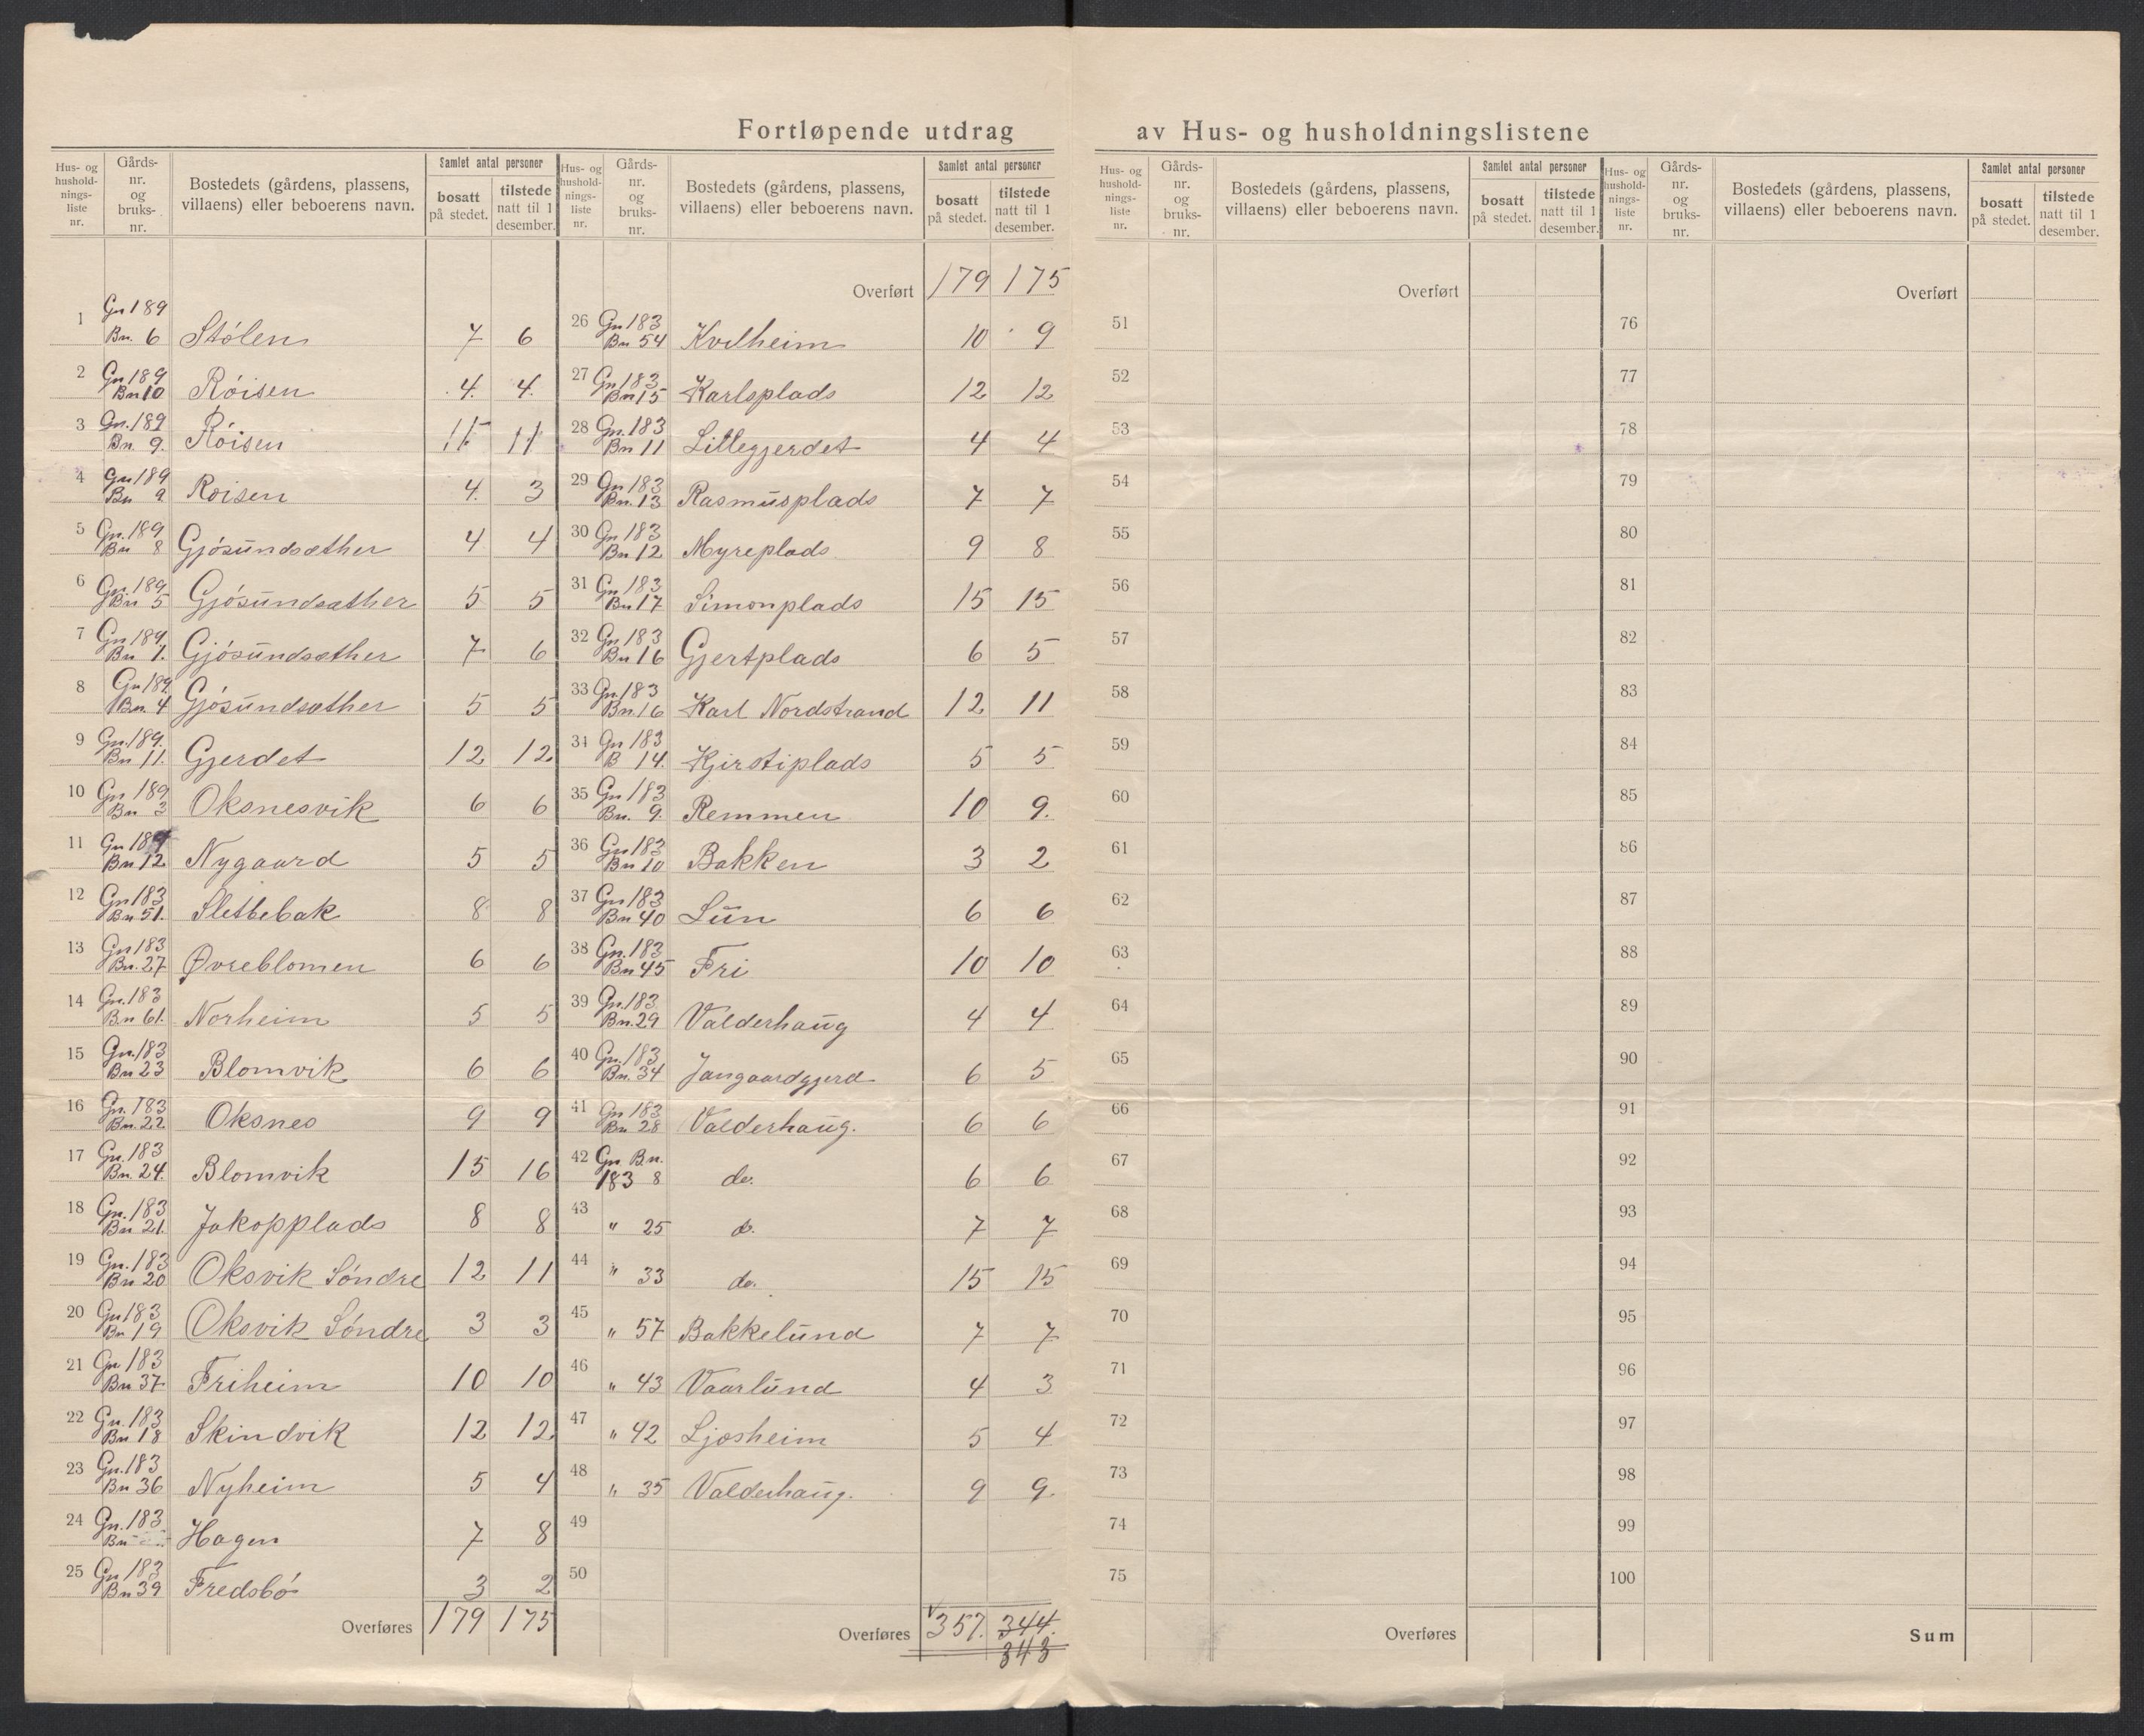 Fortløpende utdrag av Hus- og husholdningslistene
Hus- og husholdnings-liste nr. | Gårds-nr. og bruks-nr. | Bostedets (gårdens, plassens, villaens) eller beboerens navn. | Samlet antal personer | bosatt på stedet. | tilstede natt til 1 desember.
1 Gn 189 Bn. 6 Stølen 7 6
2 Gn 189 Bn 10 Røisen 4. 4.
3 Gn. 189 Bn. 9. Røisen 11 11
4 Gn 189 Bn 9 Røisen 4. 3
5 Gn. 189 Bn 8 Gjøsundsæther 4 4
6 Gn. 189 Bn 5 Gjøsundsæther 5 5
7 Gn 189 Bn 1. Gjøsundsæther 7 6
8 Gn 189. Bn. 4 Gjøsundsæther 5 5
9 Gn. 189. Bn 11. Gjerdet 12 12
10 Gn 189 Bn 3 Oksnesvik 6 6
11 Gn 189 Bn 12 Nygaard 5 5
12 Gn 183 Bn 51. Slettebak 8 8
13 Gn 183 Bn. 27 Øvreblomen 6 6
14 Gn. 183 Bn 61. Norheim 5 5
15 Gn. 183 Bn 23 Blomvik 6 6
16 Gn. 183 Bn. 22 Oksnes 9 9
17 Gn. 183 Bn. 24. Blomvik 15 16
18 Gn. 183 Bn 21. Jakopplads 8 8
19 Gn. 183 Bn 20 Oksvik Søndre 12 11
20 Gn 183 Bn 19 Oksvik Søndre 3 3
21 Gn 183 Bn 37 Friheim 10 10
22 Gn. 183 Bn 18 Skindvik 12 12
23 Gn. 183 Bn 36 Nyheim 5 4
24 Gn. 183 Bn Hagen 7 8
25 Gn 183 Bn 39 Fredsbø 3 2
Overføres 179 175
Hus- og husholdnings-liste nr. | Gårds-nr. og bruks-nr. | Bostedets (gårdens, plassens, villaens) eller beboerens navn. | Samlet antal personer | bosatt på stedet. | tilstede natt til 1 desember.
Overført 179 175
26 Gn 183 Bn 54 Kvilheim 10 9
27 Gn 183 Bn 15 Karlsplads 12 12
28 Gn. 183 Bn 11 Lillegjerdet 4 4
29 Gn 183 Bn. 13 Rasmusplads 7 7
30 Gn 183 Bn 12 Myreplads 9 8
31 Gn 183 Bn 17 Simonplads 15 15
32 Gn 183 Bn 16 Gjertplads 6 5
33 Gn. 183 Bn. 16 Karl Nordstrand 12 11
34 Gn 183 B 14. Kjirstiplads 5 5
35 Gn 183 Bn. 9. Remmen 10 9.
36 Gn 183 Bn 10 Bakken 3 2
37 Gn 183 Bn 40 Lün 6 6
38 Gn. 183 Bn 45 Fri 10 10
39 Gn. 183 Bn. 29 Valderhaug 4 4
40 Gn. 183 Bn. 34 Jangaardgjerd 6 5
41 Gn 183 Bn 28 Valderhaug. 6 6
42 Gn Bn. 183 8 do. 6 6
43 " 25 do. 7 7
44 " 33 do. 15 15
45 " 57 Bakkelund 7 7
46 " 43 Vaarlund 4 3
47 " 42 Ljosheim 5 4
48 " 35 Valderhaug. 9 9
49
50
Overføres 357. 344.
343
Hus- og husholdnings-liste nr. | Gårds-nr. og bruks-nr. | Bostedets (gårdens, plassens, villaens) eller beboerens navn. | Samlet antal personer | bosatt på stedet. | tilstede natt til 1 desember.
Overført
51
52
53
54
55
56
57
58
59
60
61
62
63
64
65
66
67
68
69
70
71
72
73
74
75
Overføres
Hus- og husholdnings-liste nr. | Gårds-nr. og bruks-nr. | Bostedets (gårdens, plassens, villaens) eller beboerens navn. | Samlet antal personer | bosatt på stedet. | tilstede natt til 1 desember.
Overført
76
77
78
79
80
81
82
83
84
85
86
87
88
89
90
91
92
93
94
95
96
97
98
99
100
Sum